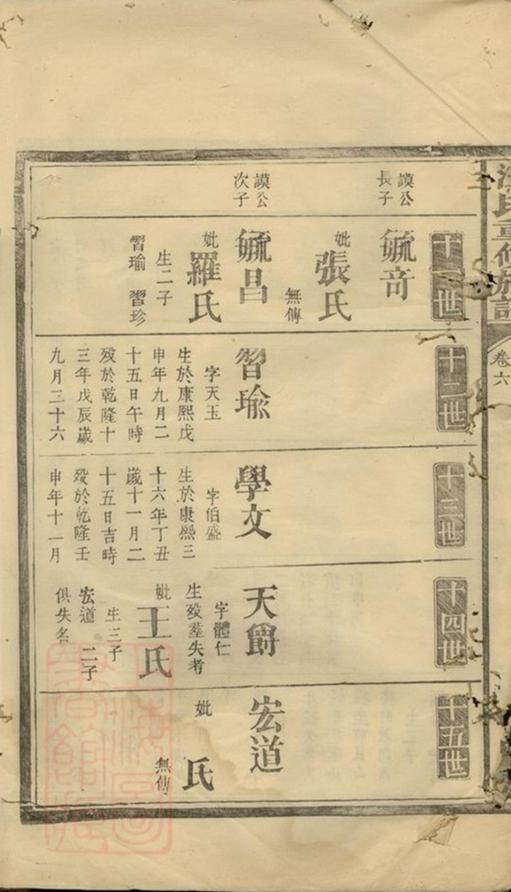 氏重修族譜
卷六
十一世
十二世
十三世
十四世
十五世
謨公
長子
毓奇
妣
張氏
無傳
謨公
次子
毓昌
妣
羅氏
生二子
習瑜 習珍
習瑜
字天玉
生於康熙戊
申年九月二
十五日午時
歿於乾隆十
三年戊辰歲
九月三十六
學文
字伯盛
生於康熙三
十六年丁丑
歲十一月二
十五日吉時
歿於乾隆壬
申年十一月
天爵
字體仁
生歿塟失考
妣
王氏
生三子
宏道 二子
俱失名
宏道
妣
氏
無傳